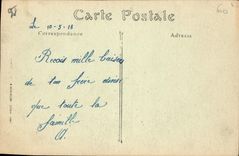 Carte Postale
Correspondance
Adresse
Le 10-5-18
Reçois mille baisers
de ton frère
que toute la
famille